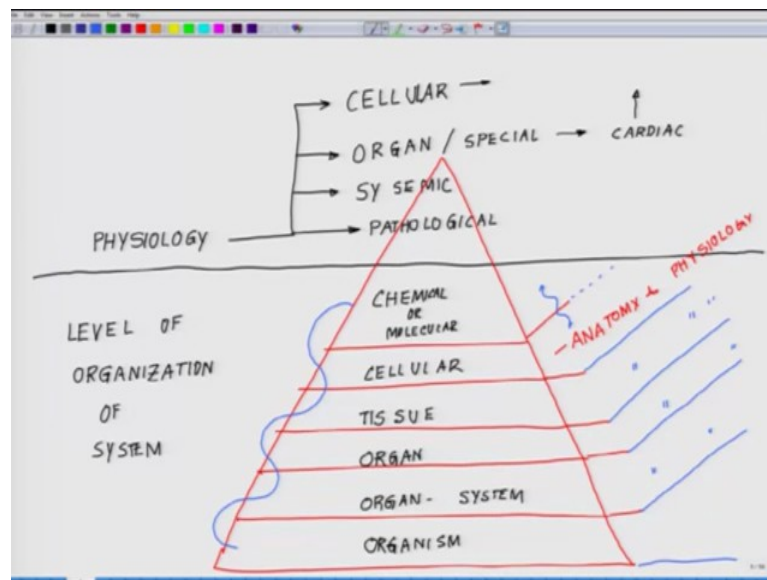 CELLULAR
ORGAN / SPECIAL
CARDIAC
SYSEMIC
PATHOLOGICAL
PHYSIOLOGY
LEVEL OF
ORGANIZATION
OF
SYSTEM
CHEMICAL
OR
MOLECULAR
CELLULAR
TISSUE
ORGAN
ORGAN - SYSTEM
ORGANISM
- ANATOMY & PHYSIOLOGY